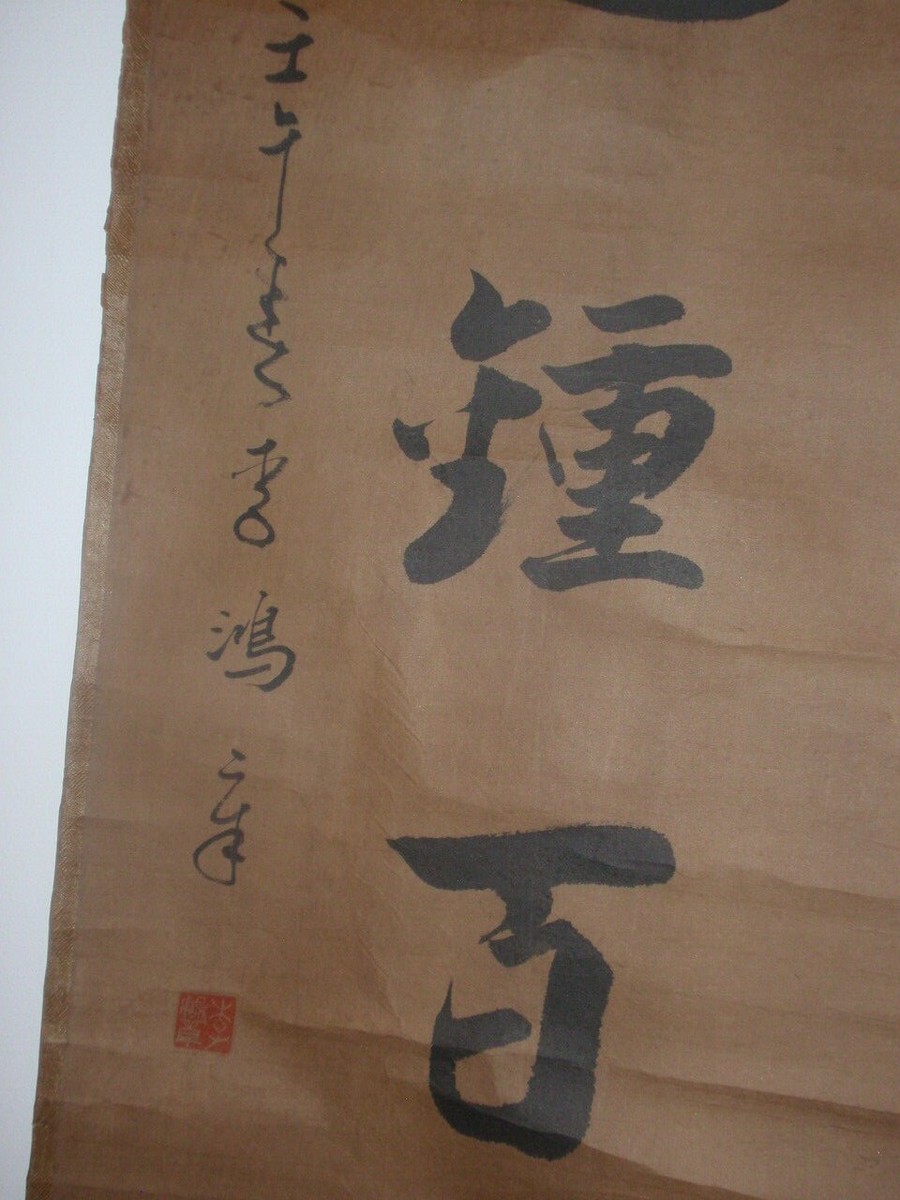 鍾百
壬午李鴻章